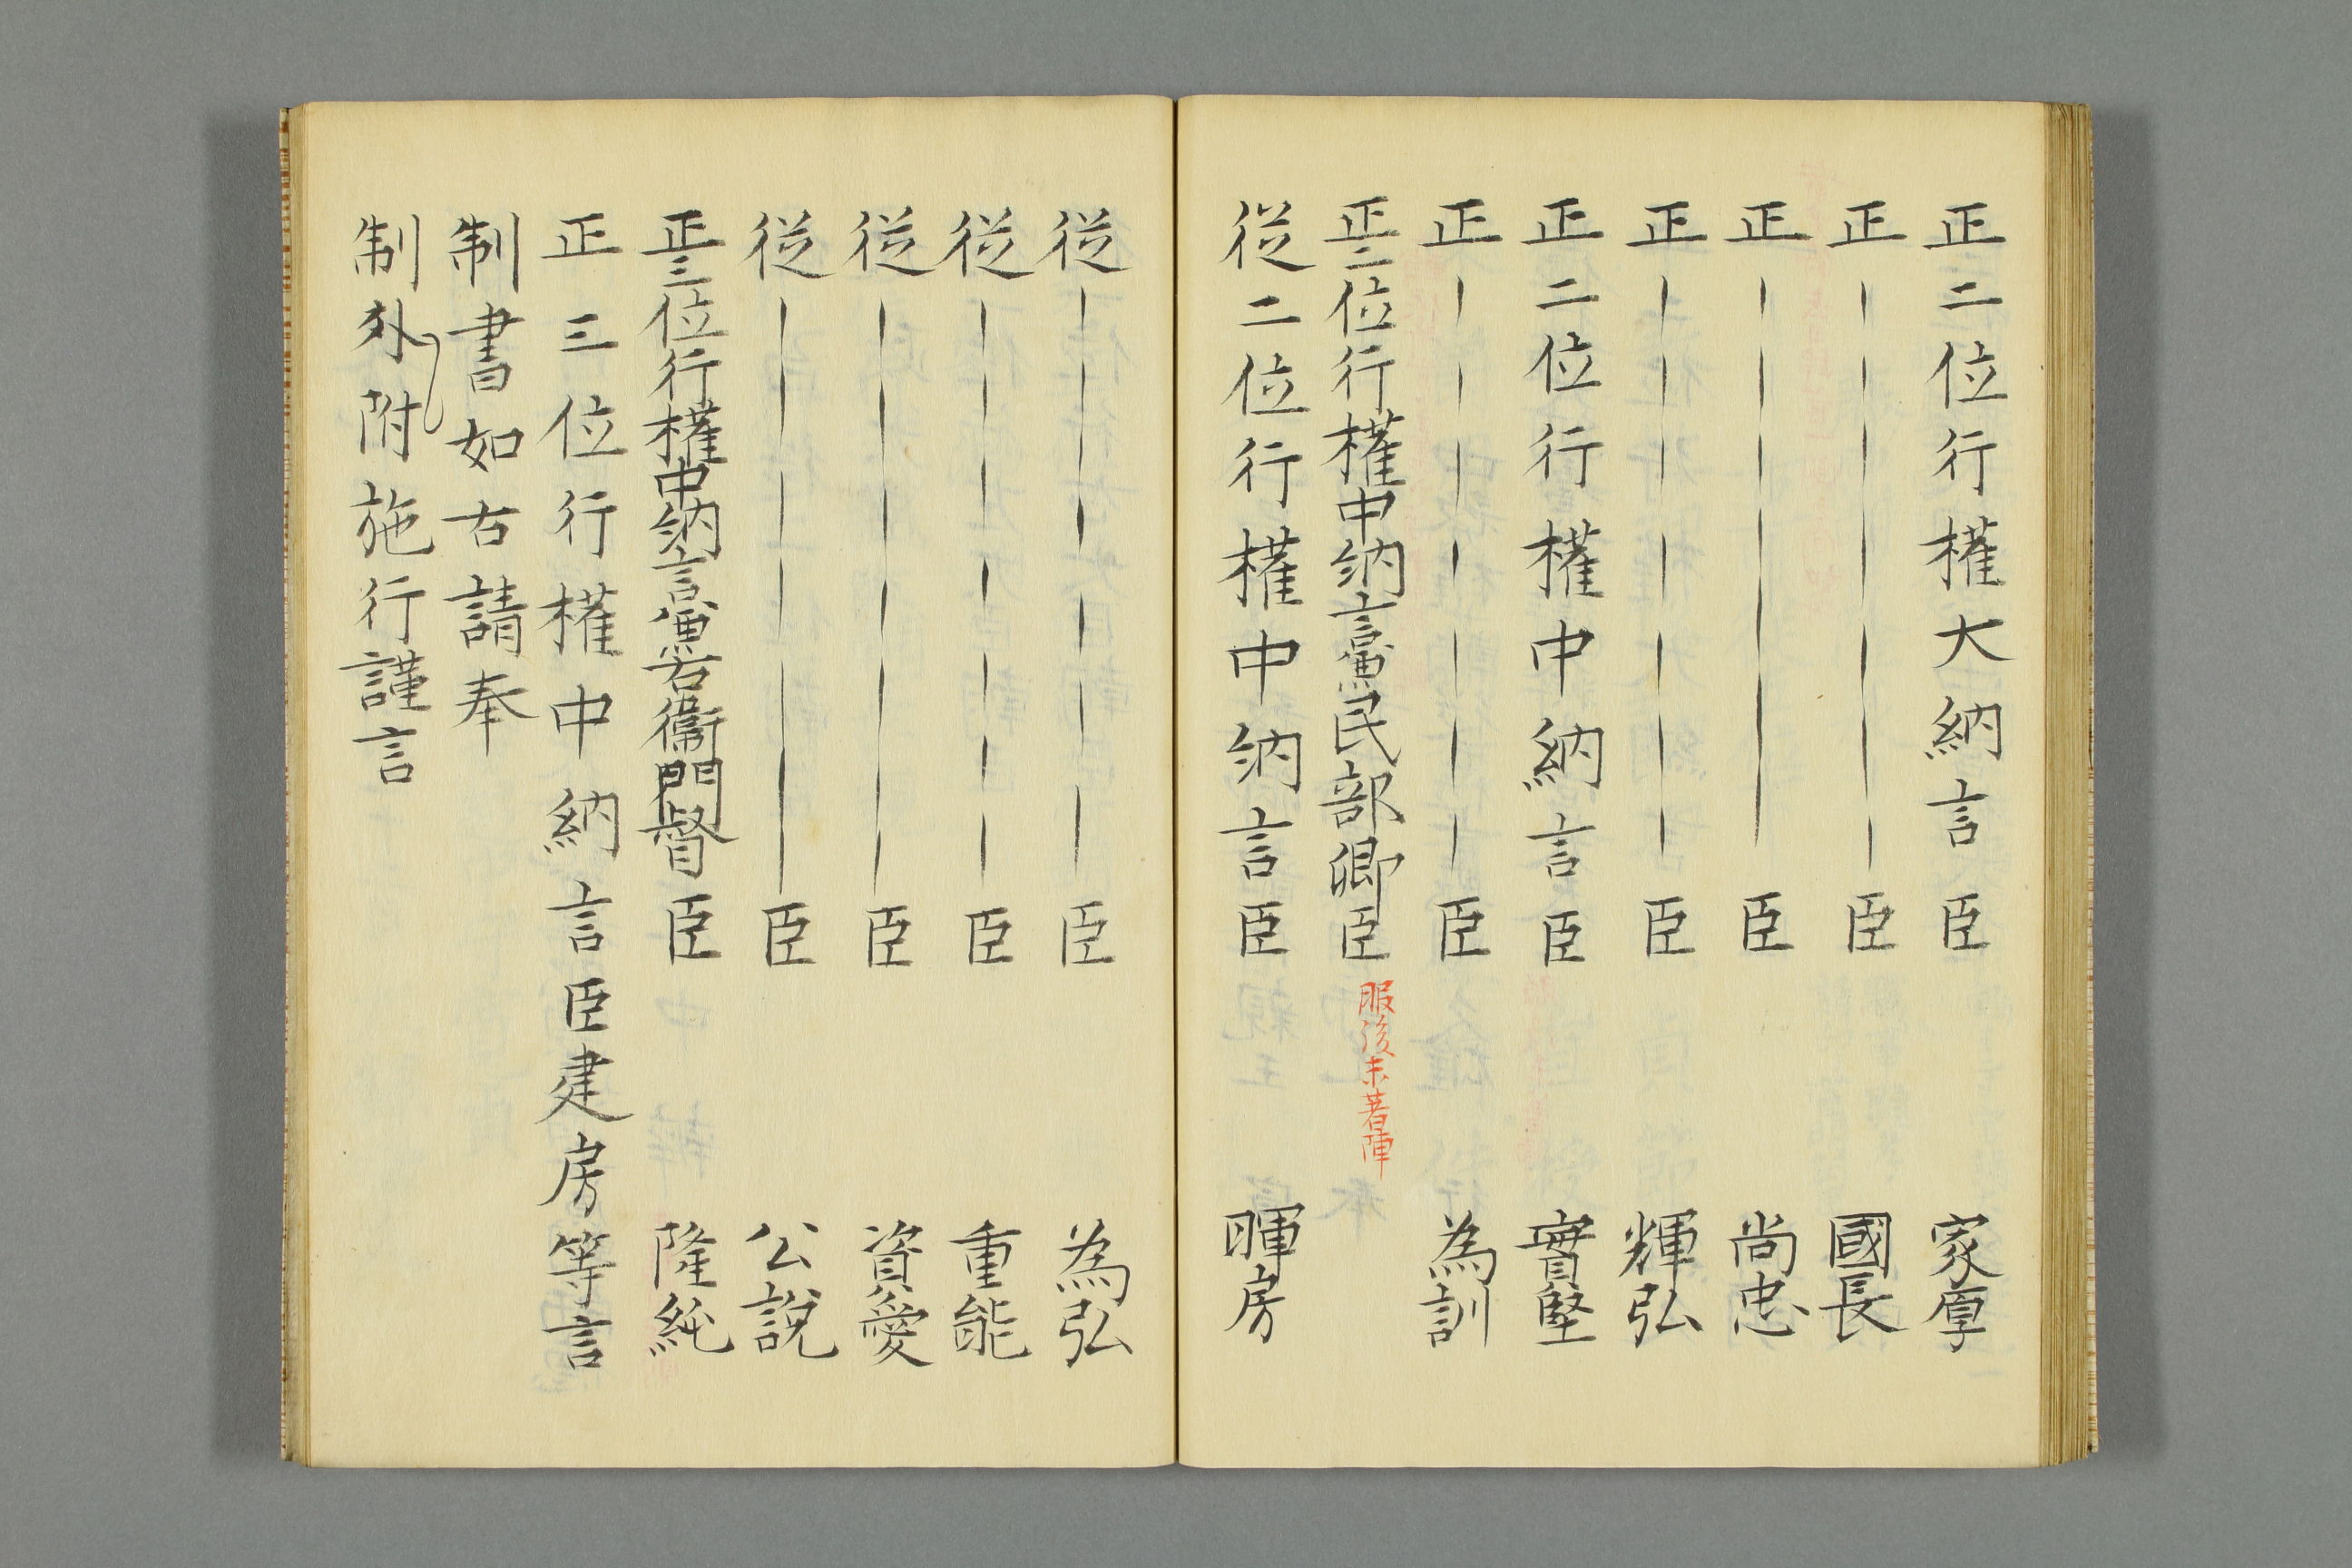 正二位行權大納言臣 家厚
正｜｜｜｜｜｜臣 國長
正｜｜｜｜｜臣 尚忠
正｜｜｜｜｜｜臣 輝弘
正二位行權中納言臣 實堅
正｜｜｜｜｜｜｜臣 為訓
正二位行權中納言兼民部卿臣 服後未著陣
從二位行權中納言臣 暉房
從｜｜｜｜｜｜｜臣 為弘
從｜｜｜｜｜｜｜臣 重能
從｜｜｜｜｜｜臣 資愛
從｜｜｜｜｜｜臣 公說
正三位行權中納言兼右衞門督臣 隆純
正三位行權中納言臣建房等言
制書如右請奉
制外附施行謹言